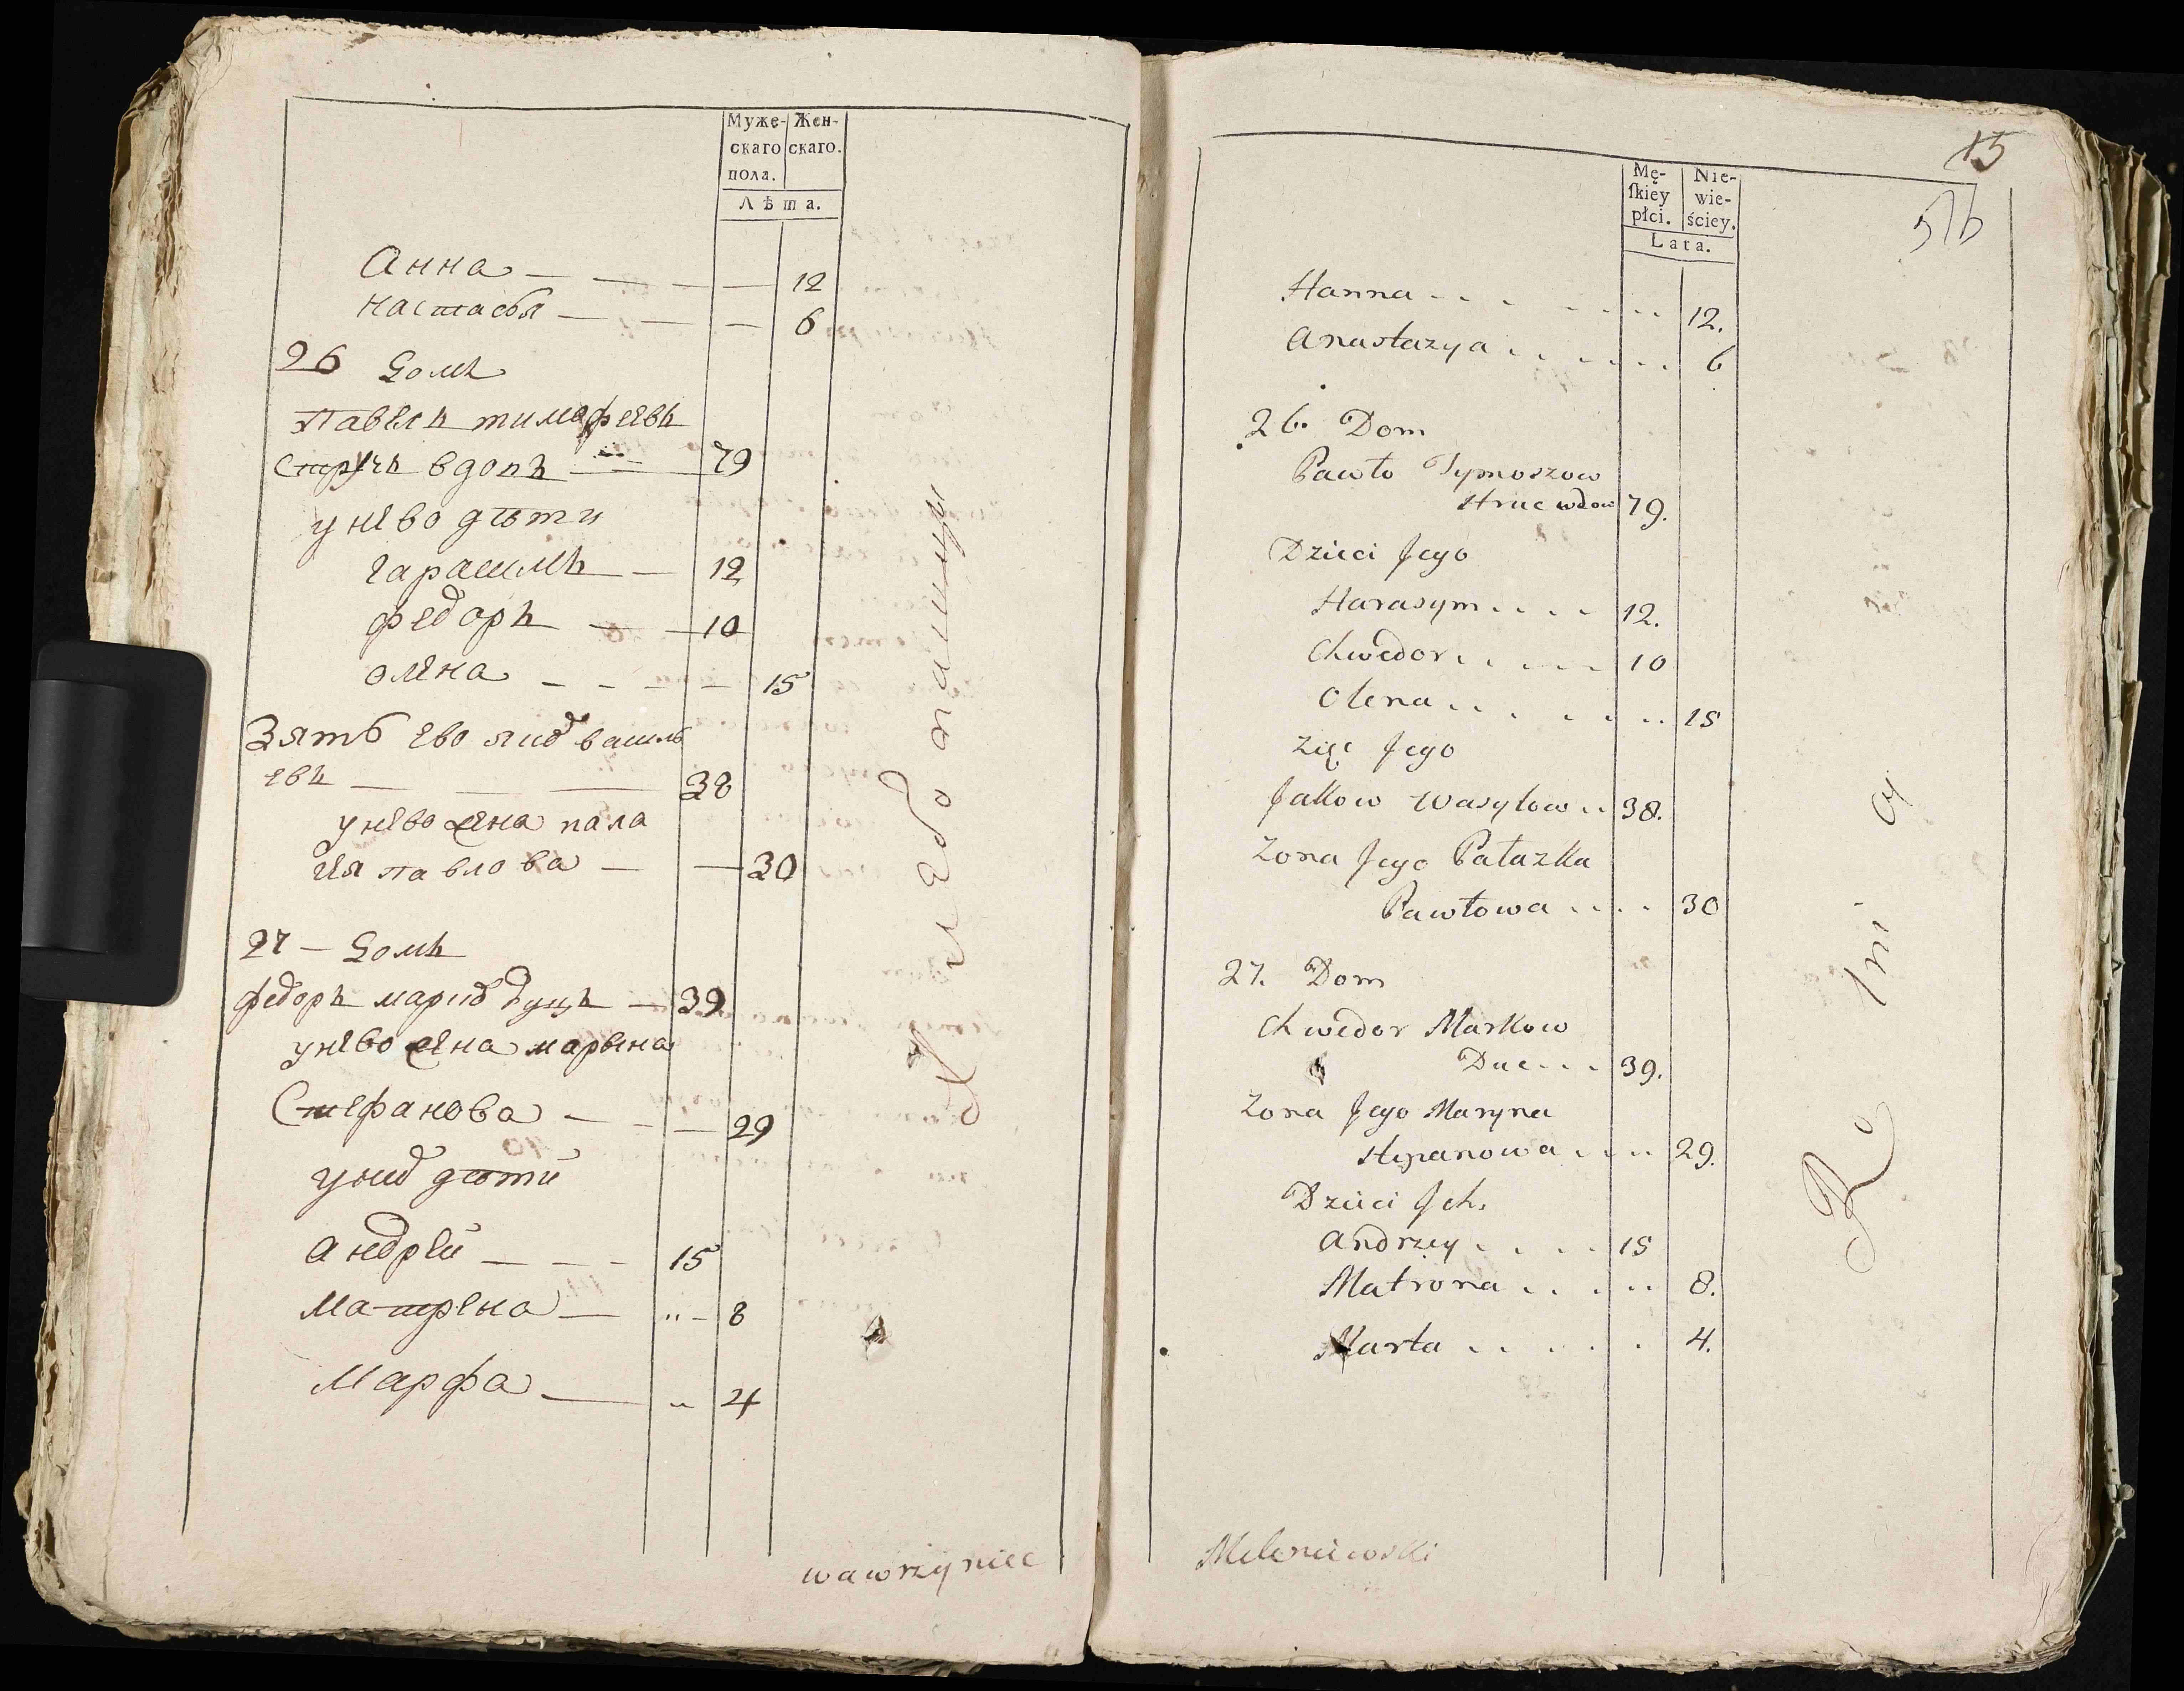 Муже- Жен-
скаго скаго.
пола.
Лѣта.
Анна — — — — 12
настасья — — — 6
26 домъ
Павелъ тимофеевъ
Стручъ вдовъ — 79
у нево дѣти
гарасимъ — 12
федоръ — 10
олена — — — — 15
Зять ево яков василь
евъ — — — 38
у нево жена пала
гия павлова — — 30
27 — домъ
федоръ марков дуцъ — 39
у нево жена марына
Стефанова — — — 29
у них дѣти
андрей — — — 15
Матрена — " — 8
Марфа — " 4
wawrzyniec
15
Mę- Nie-
skiey wie-
płci. ściey.
Lata.
Hanna . . . . . . . 12.
Anastazya . . . . . . 6
26. Dom
Pawło Tymoszow
Struc wdow 79.
Dzieci Jego
Harasym . . . . 12.
Chwedor . . . . . 10
Olena . . . . . . . 15
Zięc Jego
Jakow Wasylow . . 38.
Zona Jego Pałazka
Pawłowa . . . . 30
27. Dom
Chwedor Markow
Duc . . . 39.
Zona Jego Maryna
Stepanowa . . . . 29.
Dzieci Ich.
Andrzey . . . . 15
Matrona . . . . . 8.
Marta . . . . . . 4.